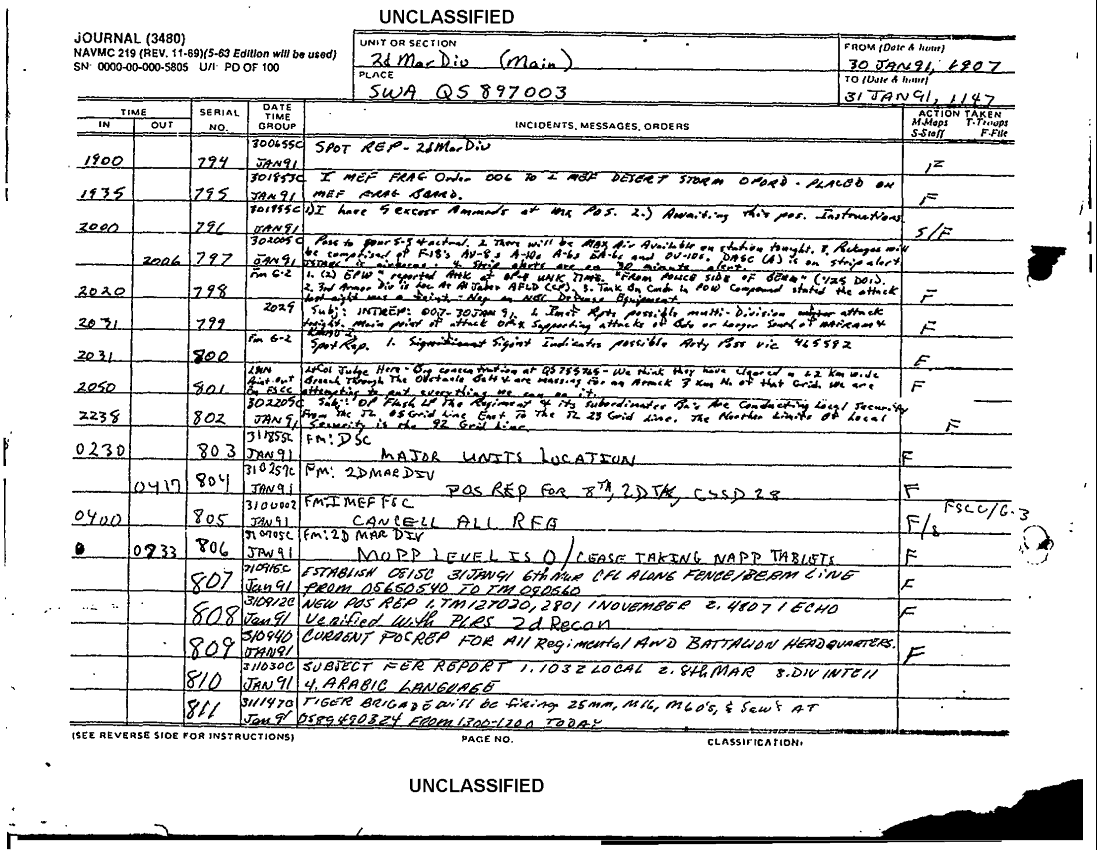 UNCLASSIFIED
JOURNAL (3480)
NAVMC 219 (REV. 11-69)(5-63 Edition will be used)
SN: 0000-00-000-5805 U/I: PD OF 100
UNIT OR SECTION
2d MarDiv (Main)
PLACE
SWA QS 897003
FROM (Date & hour)
30 JAN 91,
TO (Date & hour)
31 JAN 91, 1147
TIME
IN OUT
SERIAL NO.
DATE TIME GROUP
INCIDENTS, MESSAGES, ORDERS
ACTION TAKEN
M-Maps T-Troops
S-Staff F-File
300655C SPOT REP - 2d MarDiv
1900 794 JAN91 F
301853C I MEF FRAG Order 006 To I MEF DESERT STORM OPORD - PLACED ON
1935 795 JAN91 MEF FRAG BOARD. F
301955C 1) I have 5 excess Ammords at my POS. 2.) Awaiting This pos. Instructions
2000 796 JAN91 S/F
302005C Pass to your S-3 actual. 2. There will be MAX Air Available on station tonight. 3. Packages will
be comprised of F-18's, AV-8s A-10s, A-6s EA-6s and OV-10s. DASC (A) is on strip alert
2006 797 JAN91 4 Strip alerts are on 30 minute alert.
Fm G-2 1. (2) EPW" reported Attk at OP-4 UNK TIME. "FROM POLICE SIDE OF BERM" (425 DOI).
2. 3rd Armor Div is Loc At Al Jaber AFLD (LP). 3. Tank Bn Cmdr in POW Compound stated the attack
2020 798 last night was a feint. - Neg on NBC Defense Equipment F
2029 Subj: INTREP: 007-30 JAN 91. 1. Inst Rpts possible multi-Division attack
2031 799 tonight. Main point of attack OP4 Supporting attacks of Bde or Larger South of F
Fm G-2 Spot Rep. 1. Significant Sigint Indicates possible Arty Poss vic 465592
2031 800 F
LtCol Judge Here - Big concentration at QS 755765 - We think they have cleared a 1-2 Km wide
Breach Through The Obstacle Belt & are massing For an Attack 3 Km N. of that Grid. We are
2050 801 Fm FSCC attempting to put everything we can on it. F
302205C Subj: OP Flash LP The Regiment & its Subordinates Bn's Are Conducting Local Security
From the TL 05 Grid Line East To The TL 23 Grid Line. The Norther Limits Of Local
2238 802 JAN91 Security is the 92 Grid Line. F
311855C FM: DSC
0230 803 JAN91 MAJOR UNITS LOCATION F
310257C FM: 2D MAR DIV
0417 804 JAN91 POS REP FOR 8TH, 2D TK, CSSD 28 F
FM: I MEF FSC FSCC/G-3
0400 805 JAN91 CANCELL ALL RFA F/S
310705C FM: 2D MAR DIV
0833 806 JAN91 MOPP LEVEL IS 0/CEASE TAKING NAPP TABLETS F
310915C ESTABLISH 0815C 31JAN91 6th Mar CFL ALONG FENCE/BERM LINE
807 Jan91 FROM 05650540 TO TM 090560 F
310912C NEW POS REP 1. TM127020, 2801 1 NOVEMBER 2. 4807 1 ECHO
808 Jan91 Verified With PLRS 2d Recon F
310940 CURRENT POSREP FOR All Regimental AND BATTALION HEADQUARTERS.
809 JAN91 F
311030C SUBJECT FER REPORT 1. 1032 LOCAL 2. 8th MAR 3. DIV INTEll
810 JAN91 4. ARABIC LANGUAGE
311147C TIGER BRIGADE will be firing 25mm, M16, M60's, & Saw's AT
811 Jan 91 0589490324 FROM 1300-1700 TODAY
(SEE REVERSE SIDE FOR INSTRUCTIONS)
PAGE NO.
CLASSIFICATION:
UNCLASSIFIED